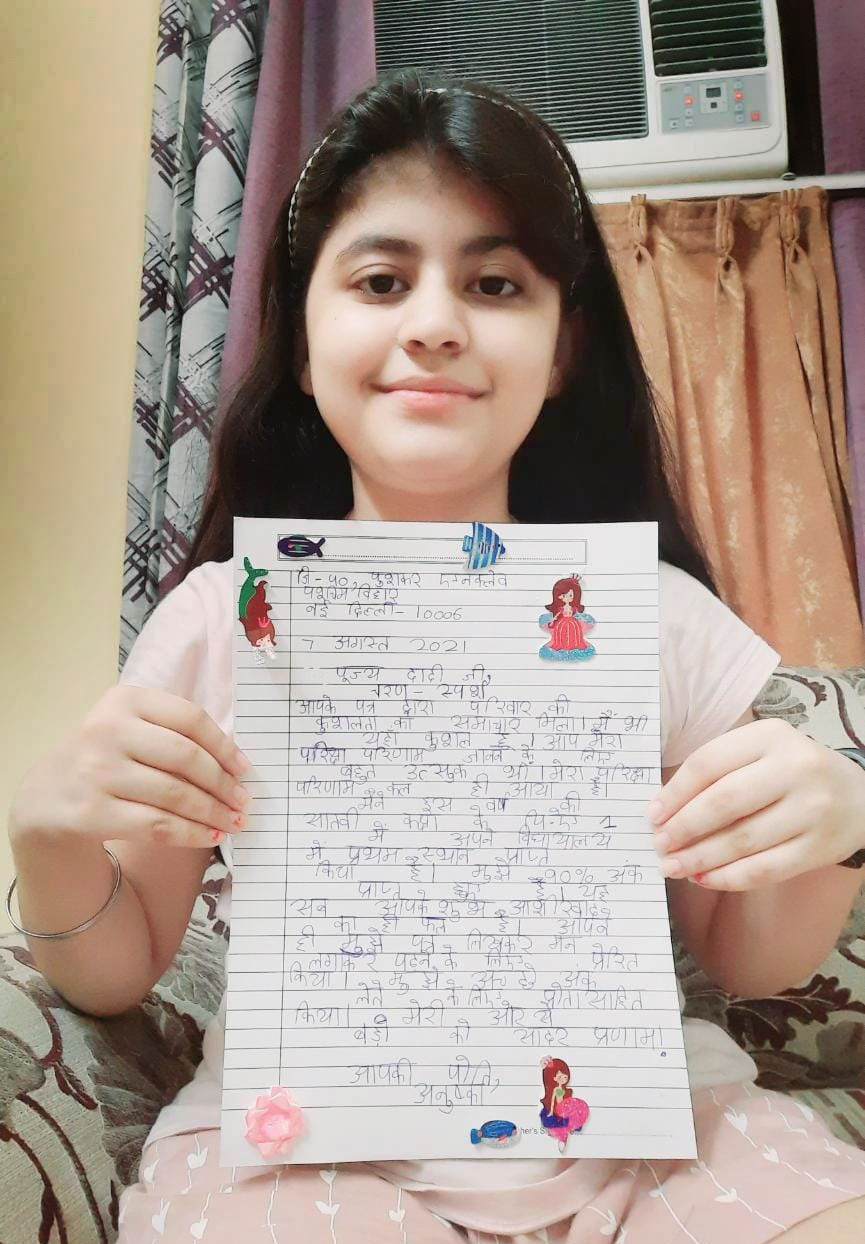 जि - ५०, पुशकर एन्नक्लेव
पश्चिम विहार
नई दिल्ली - 10006
7 अगस्त 2021
पूज्य दादी जी,
चरण - स्पर्श
आपके पत्र द्वारा परिवार की
कुशलता का समाचार मिला। मैं भी
यहाँ कुशल हूँ। आप मेरा
परिक्षा परिणाम जानने के लिए
बहुत उत्सुक थी। मेरा परिक्षा
परिणाम कल ही आया है।
मैंने इस की
सातवी कक्षा के पि.टी 1
में अपने विद्यायालय
में प्रथम स्थान प्राप्त
किया है। मुझे 90% अंक
प्राप्त हुए है। यह
सब आपके शुभ आशीरवाद
का ही फल है। आपने
ही मुझे पत्र लिखकर मन
लगाकर पढने के लिए प्रेरित
किया। मुझे अच्छे अंक
लेने के लिए प्रोतसाहित
किया। मेरी ओर से
बड़ो को सादर प्रणाम!
आपकी पोति,
अनुष्का
her's S